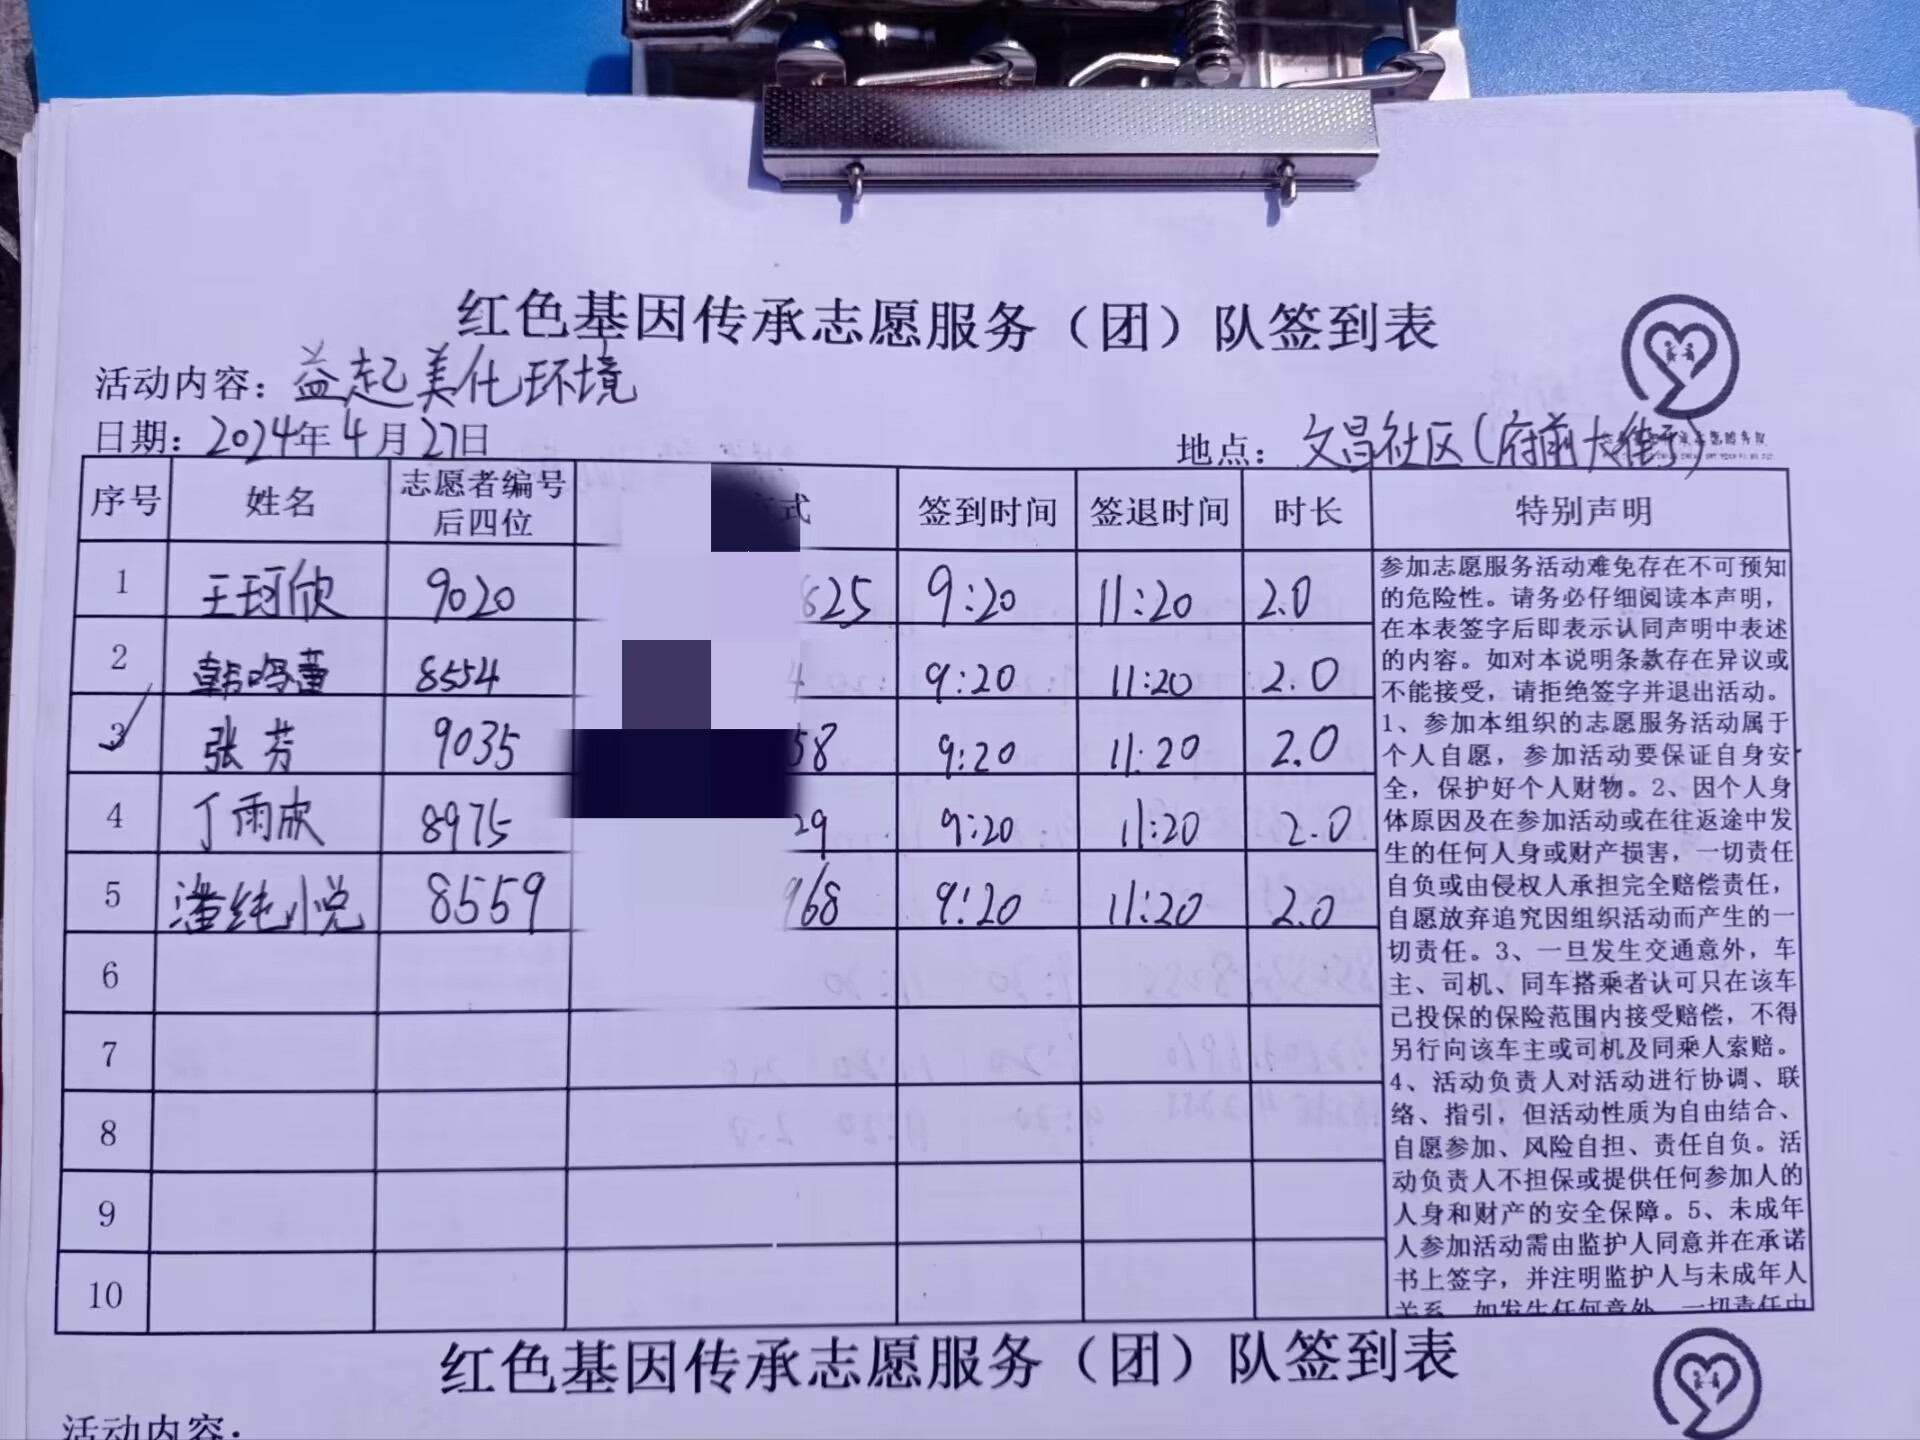 红色基因传承志愿服务（团）队签到表
活动内容：益起美化环境
日期：2024年4月27日
地点：文昌社区(府前大街)
序号 姓名 志愿者编号后四位 式 签到时间 签退时间 时长 特别声明
1 王珂欣 9020 825 9:20 11:20 2.0
2 韩鸣蕾 8554 4 9:20 11:20 2.0
3 张芳 9035 58 9:20 11:20 2.0
4 丁雨欣 8975 29 9:20 11:20 2.0
5 潘纯小悦 8559 968 9:20 11:20 2.0
6
7
8
9
10
参加志愿服务活动难免存在不可预知
的危险性。请务必仔细阅读本声明，
在本表签字后即表示认同声明中表述
的内容。如对本说明条款存在异议或
不能接受，请拒绝签字并退出活动。
1、参加本组织的志愿服务活动属于
个人自愿，参加活动要保证自身安
全，保护好个人财物。2、因个人身
体原因及在参加活动或在往返途中发
生的任何人身或财产损害，一切责任
自负或由侵权人承担完全赔偿责任，
自愿放弃追究因组织活动而产生的一
切责任。3、一旦发生交通意外，车
主、司机、同车搭乘者认可只在该车
已投保的保险范围内接受赔偿，不得
另行向该车主或司机及同乘人索赔。
4、活动负责人对活动进行协调、联
络、指引，但活动性质为自由结合、
自愿参加、风险自担、责任自负。活
动负责人不担保或提供任何参加人的
人身和财产的安全保障。5、未成年
人参加活动需由监护人同意并在承诺
书上签字，并注明监护人与未成年人
关系，如发生任何意外，一切责任由
红色基因传承志愿服务（团）队签到表
活动内容：